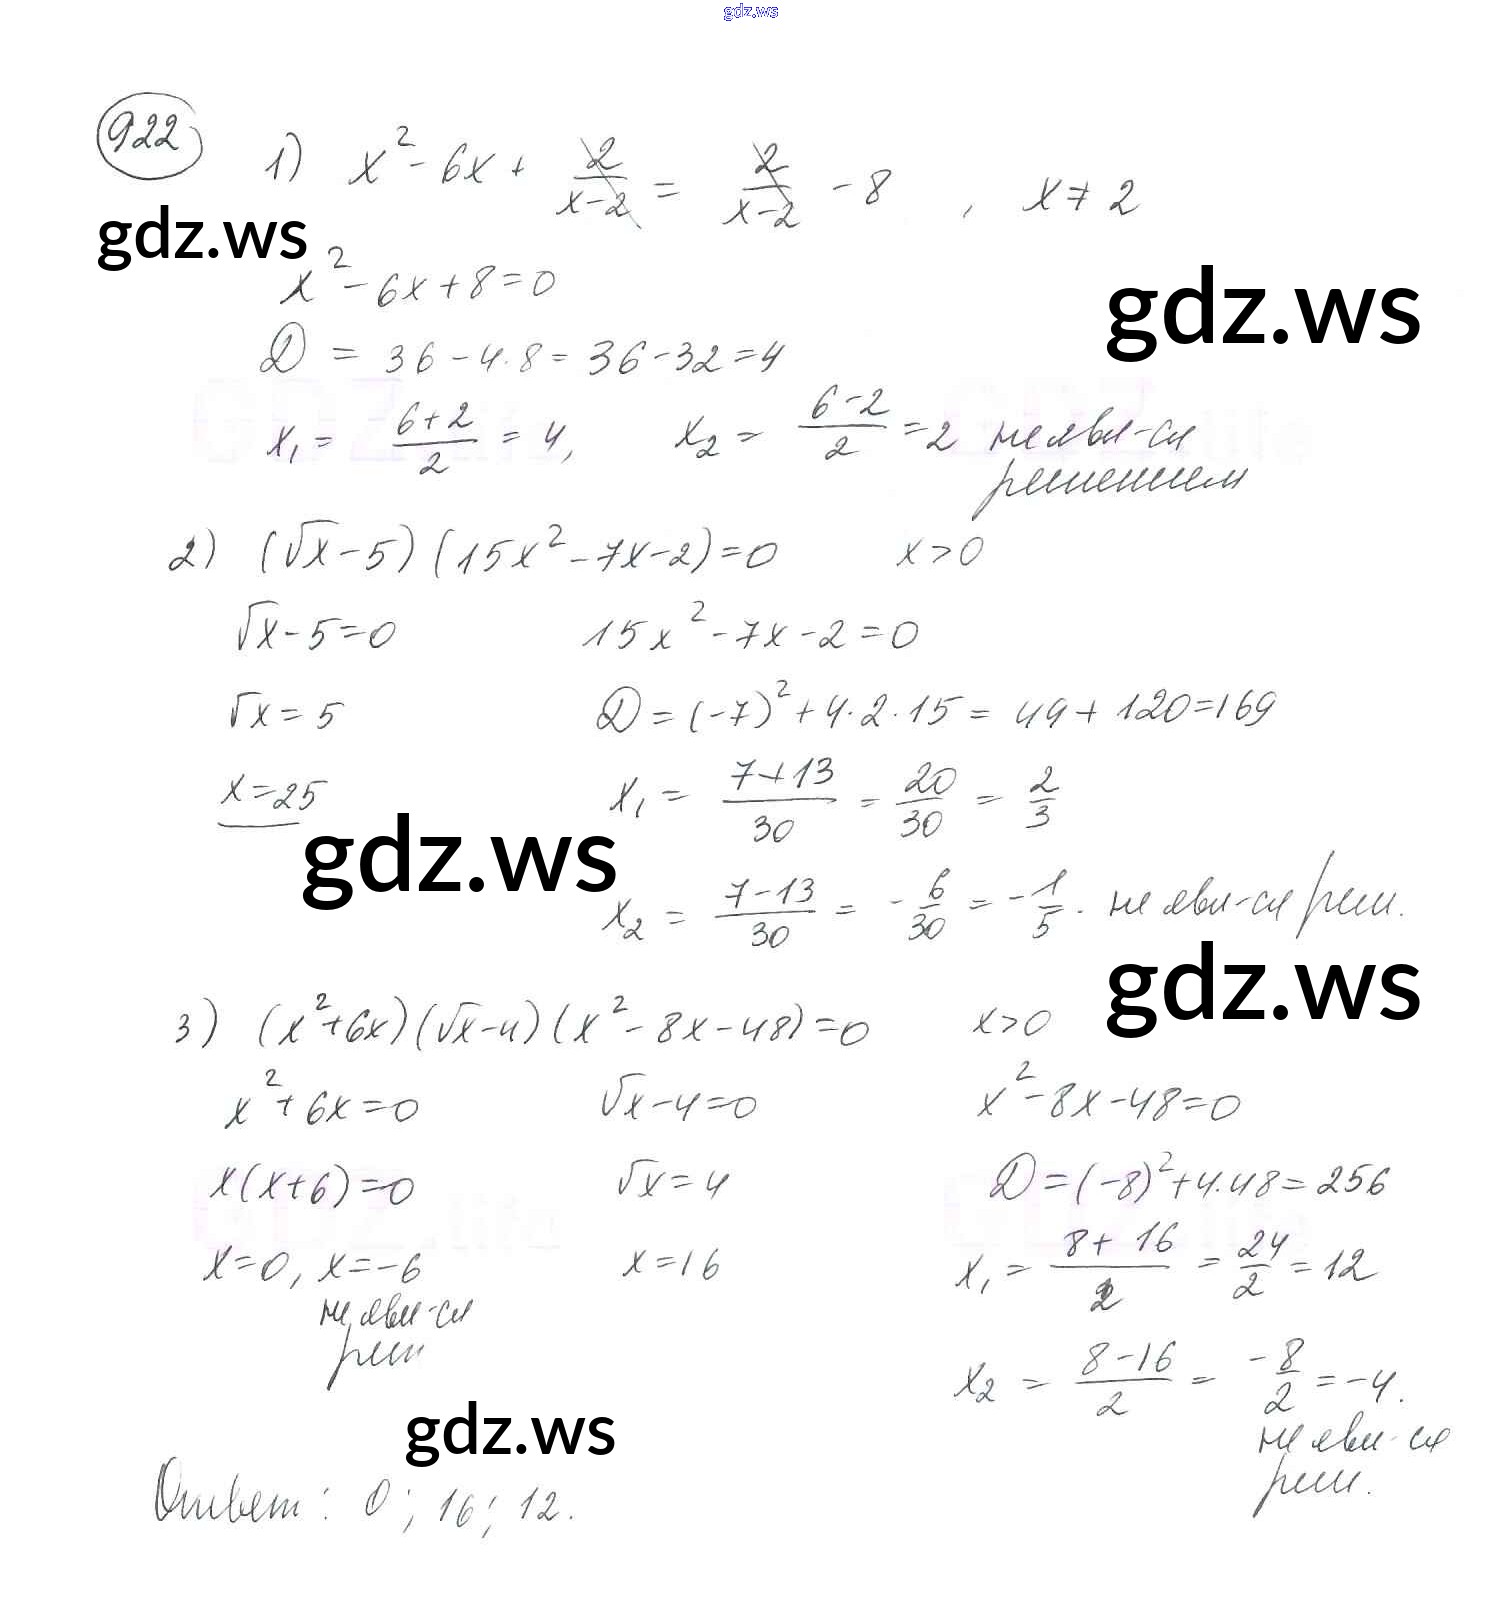 gdz.ws
922
1) x² - 6x + 2/(x-2) = 2/(x-2) - 8 , x ≠ 2
gdz.ws
x² - 6x + 8 = 0
gdz.ws
D = 36 - 4·8 = 36 - 32 = 4
x₁ = (6+2)/2 = 4, x₂ = (6-2)/2 = 2 не явл-ся
решением
2) (√x - 5)(15x² - 7x - 2) = 0 x > 0
√x - 5 = 0 15x² - 7x - 2 = 0
√x = 5 D = (-7)² + 4·2·15 = 49 + 120 = 169
x = 25 x₁ = (7+13)/30 = 20/30 = 2/3
gdz.ws
x₂ = (7-13)/30 = -6/30 = -1/5. не явл-ся реш.
gdz.ws
3) (x² + 6x)(√x - 4)(x² - 8x - 48) = 0 x > 0
x² + 6x = 0 √x - 4 = 0 x² - 8x - 48 = 0
x(x+6) = 0 √x = 4 D = (-8)² + 4·48 = 256
x = 0, x = -6 x = 16 x₁ = (8+16)/2 = 24/2 = 12
не явл-ся
реш
x₂ = (8-16)/2 = -8/2 = -4.
не явл-ся
реш.
gdz.ws
Ответ: 0; 16; 12.